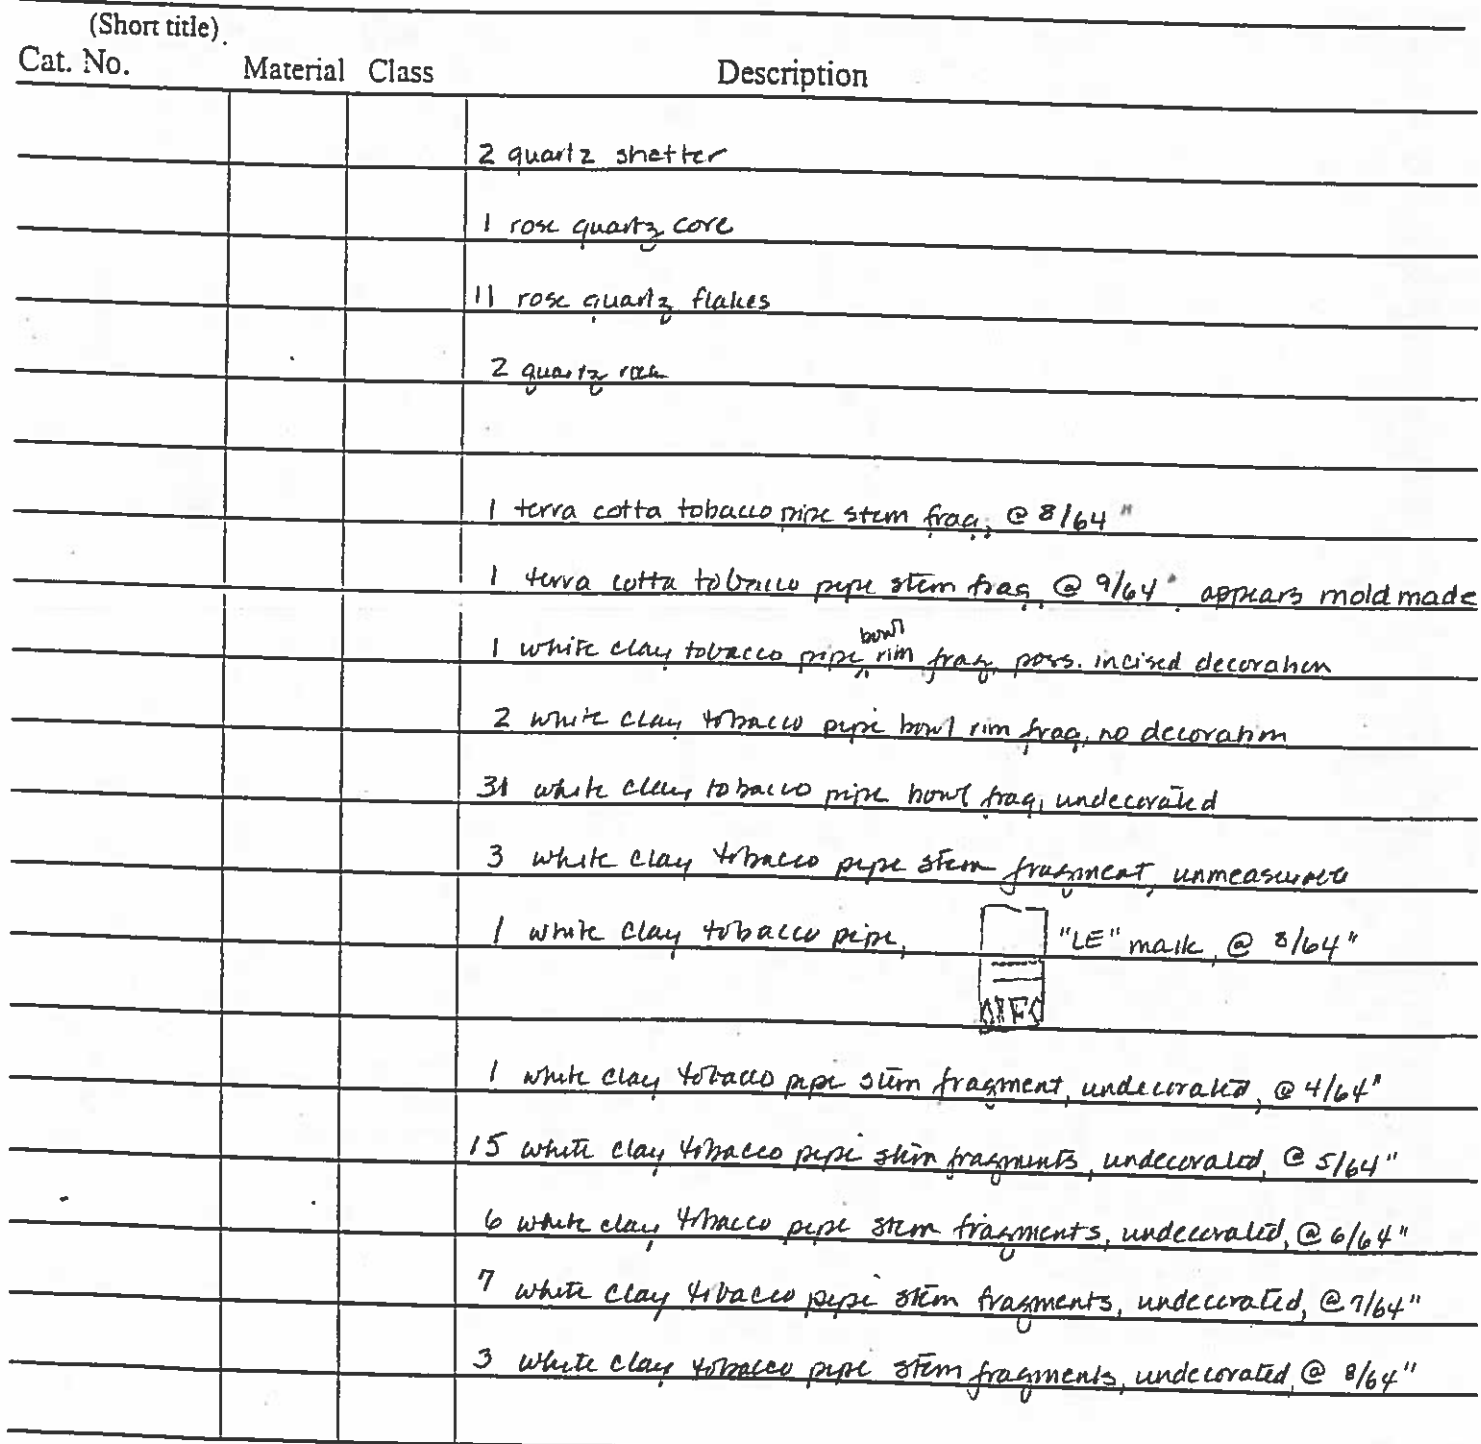 (Short title)
Cat. No. Material Class Description
2 quartz shatter
1 rose quartz core
11 rose quartz flakes
2 quartz
1 terra cotta tobacco pipe stem frag, @ 8/64"
1 terra cotta tobacco pipe stem frag @ 9/64" appears mold made
1 white clay tobacco pipe bowl rim frag, poss. incised decoration
2 white clay tobacco pipe bowl rim frag, no decoration
31 white clay tobacco pipe bowl frag, undecorated
3 white clay tobacco pipe stem fragment, unmeasurable
1 white clay tobacco pipe, "LE" mark, @ 8/64"
1 white clay tobacco pipe stem fragment, undecorated, @ 4/64"
15 white clay tobacco pipe stem fragments, undecorated, @ 5/64"
6 white clay tobacco pipe stem fragments, undecorated, @ 6/64"
7 white clay tobacco pipe stem fragments, undecorated, @ 7/64"
3 white clay tobacco pipe stem fragments, undecorated @ 8/64"